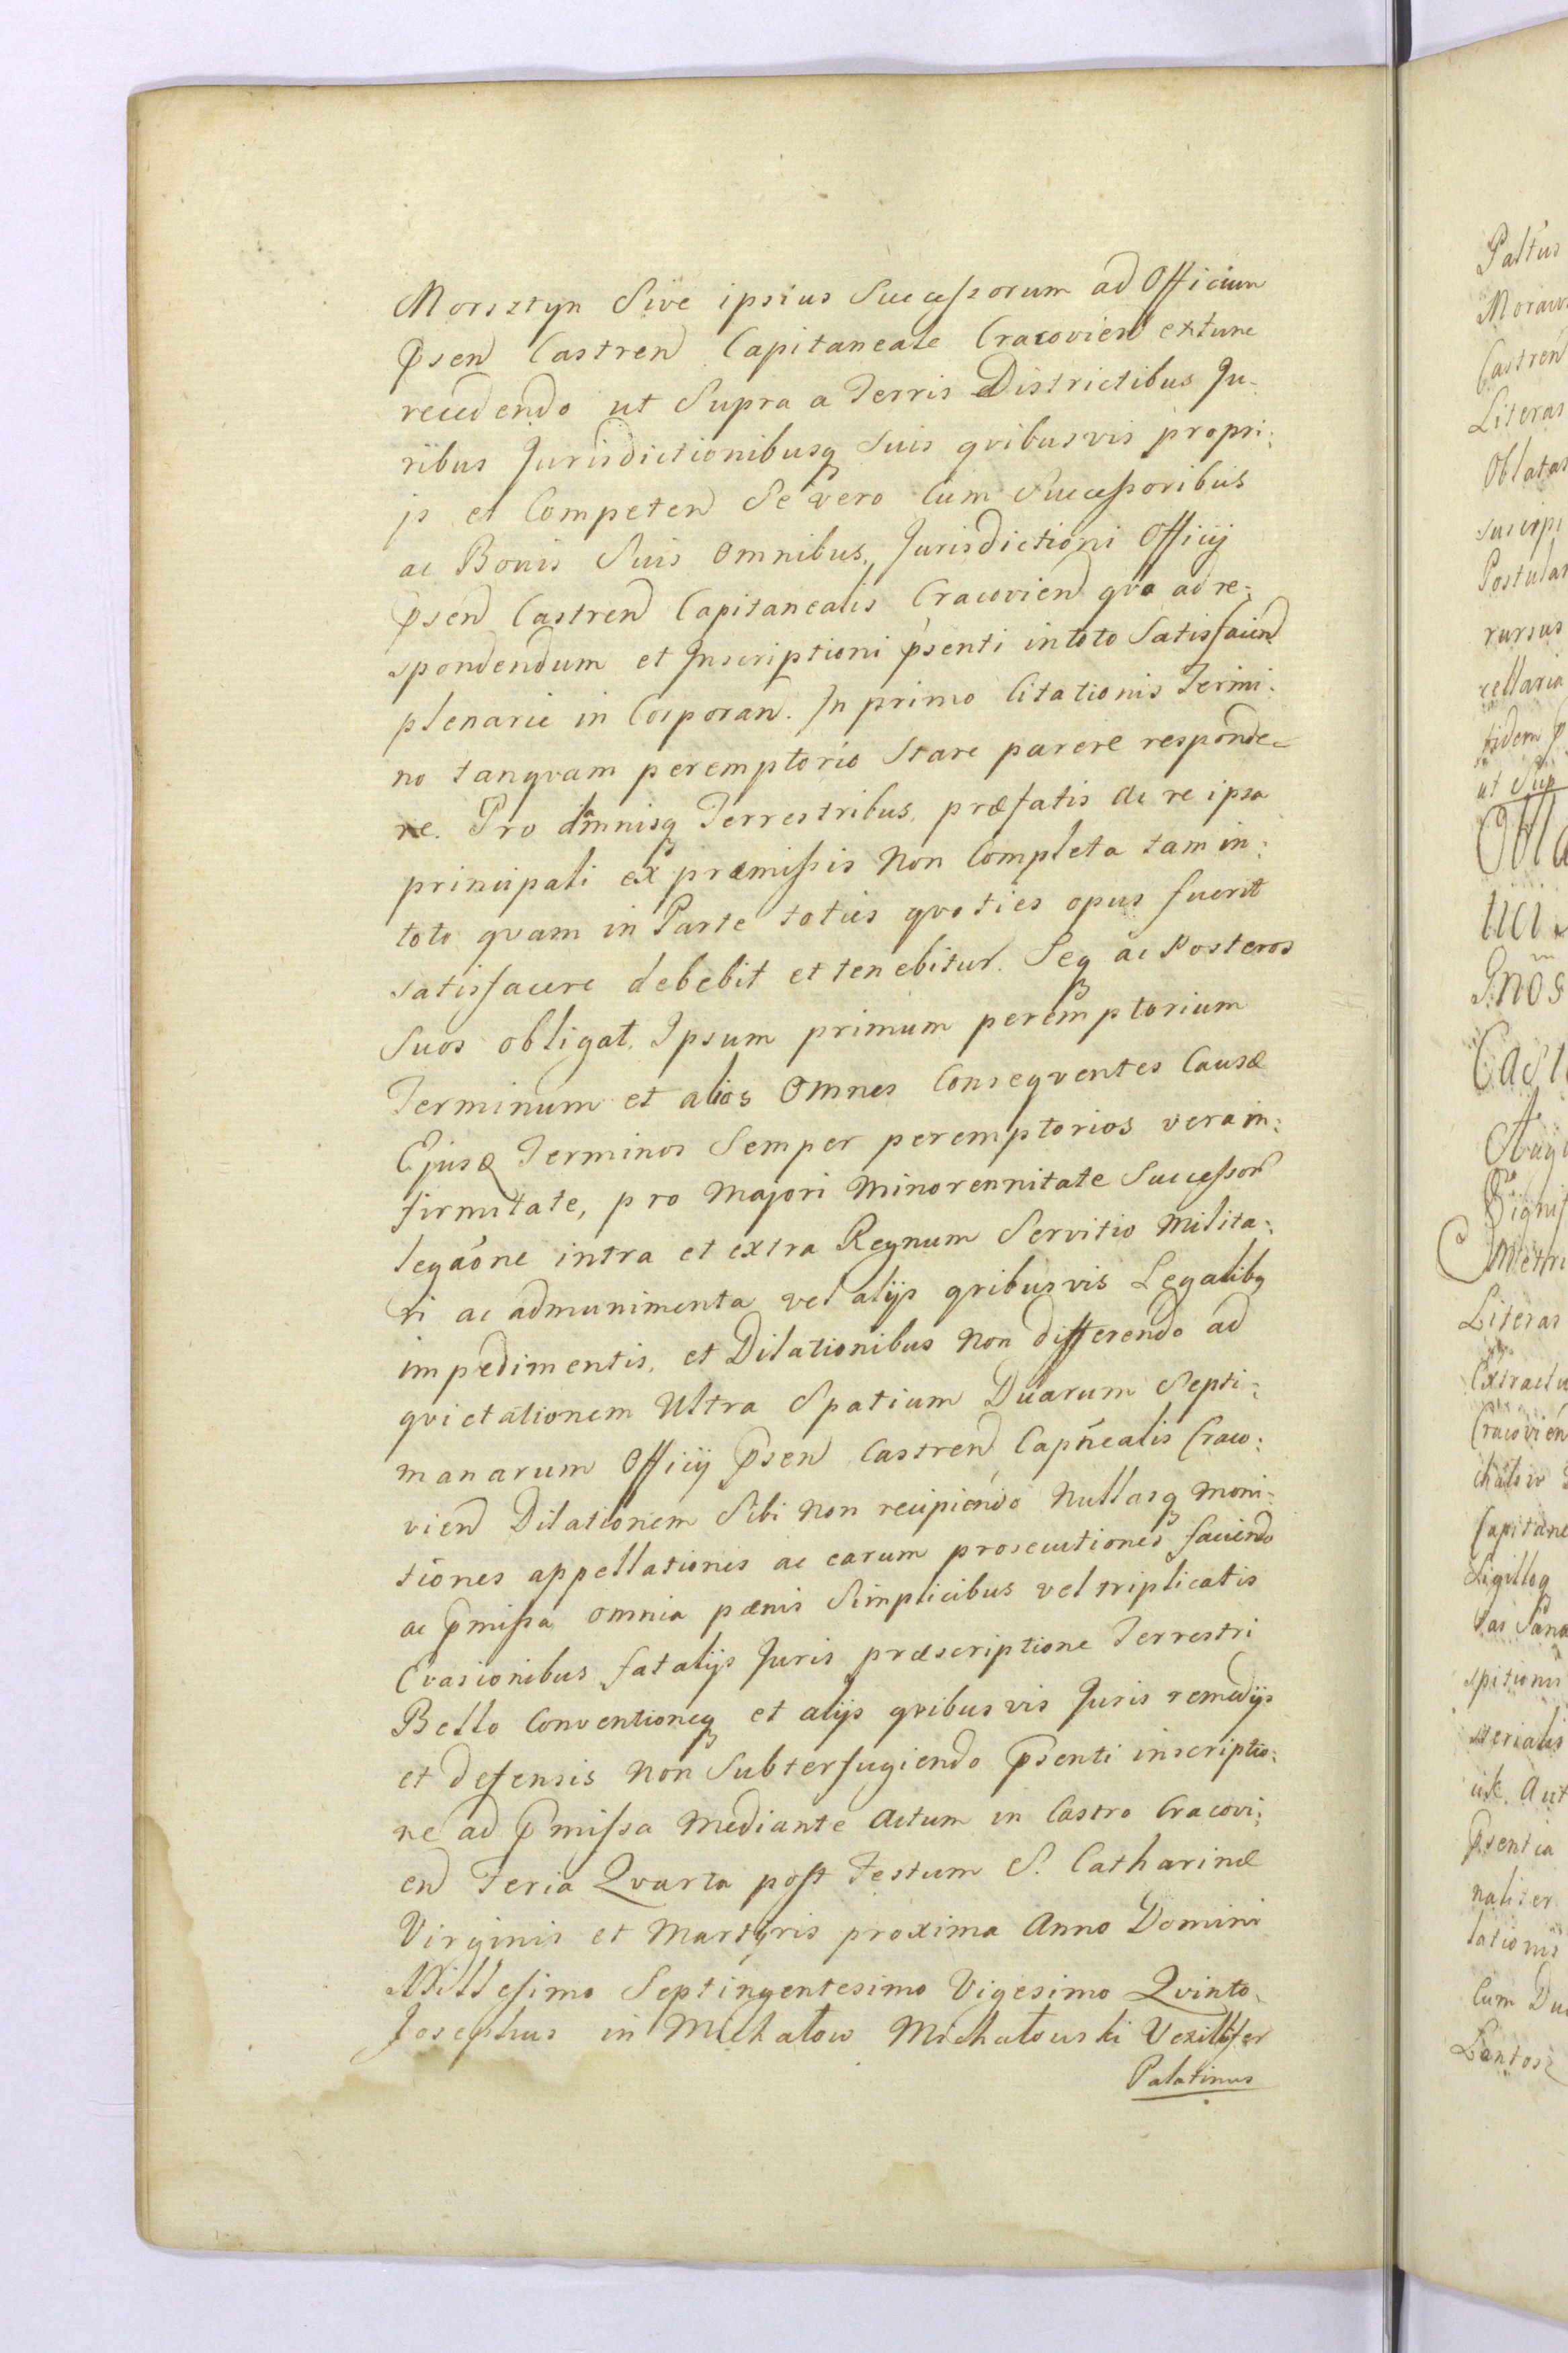 Morsztyn Sive ipsius Successorum ad Officium
Psen Castren Capitaneale Cracovien extunc
recedendo ut Supra a Terris Districtibus Ju-
ribus Jurisdictionibusq Suis qvibusvis propri:
js et Competen Se vero Cum Successoribus
ac Bonis Suis omnibus, Jurisdictioni Officij
Psen Castren Capitanealis Cracovien qvo ad re:
spondendum et Inscriptioni psenti intoto Satisfacien
plenarie in Corporan. In primo Citationis Termi:
no tanqvam peremptorio Stare parere responde-
re. Pro damnisq Terrestribus, præfatis ac re ipsa
principali ex præmissis Non Completa tam in:
toto qvam in Parte toties qvoties opus fuerit
satisfacere debebit et tenebitur. Seq ac Posteros
Suos obligat, Ipsum primum peremptorium
Terminum et alios Omnes Conseqventes Causæ
Ejusq Terminos Semper peremptorios vera in:
firmitate, pro Majori Minorennitate Successor
legaõne intra et extra Regnum Servitio Milita:
ri ac admunimenta vel alijs qvibusvis Legalibq
impedimentis, et Dilationibus Non differendo ad
qvietationem Ultra Spatium Duarum Septi:
manarum Officij Psen Castren Capnealis Craco:
vien Dilationem Sibi Non recipiendo Nullasq Moni:
tiones appellationis ac earum prosecutiones faciendo
ac Pmissa omnia pænis Simplicibus vel triplicatis
Evasionibus fatalijs Juris præscriptione Terrestri
Bello Conventioneq et alijs qvibusvis Juris remedijs
et defensis Non Subterfugiendo Psenti inscriptio:
ne ad Pmissa Mediante Actum in Castro Cracovi:
en Feria Qvarta post Festum S. Catharinæ
Virginis et Martyris proxima Anno Domini
Millesimo Septingentesimo Vigesimo Qvinto.
Josephus in Michałow Michałowski Vexillifer
Palatinus
Paltus
Castren
Literas
suscipi
rursus
ut Sup
tici.
Gnos
Literas
Sigilloq
Psentia